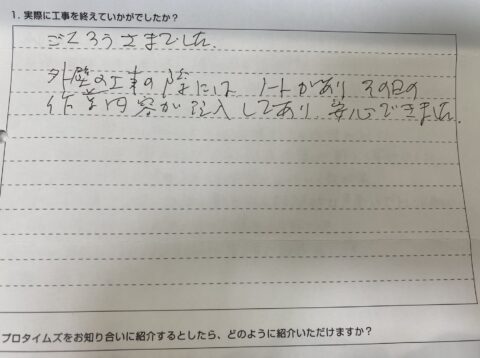 1. 実際に工事を終えていかがでしたか？
ごくろうさまでした.
外壁の工事の際には ノートがあり その日の
作業内容が記入してあり 安心できました.
プロタイムズをお知り合いに紹介するとしたら、どのように紹介いただけますか？